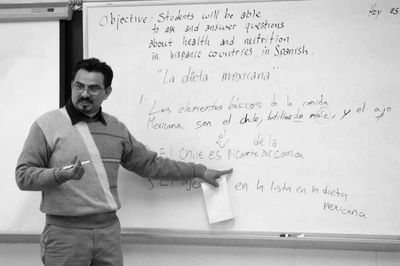 Objective: Students will be able
to ask and answer questions
about health and nutrition
in hispanic countries, in Spanish.
Hoy es
"La dieta mexicana"
1- Los elementos básicos de la comida
Mexicana son el chile, tortillas de maíz, y el ajo
de la
El chile es Picante comida
en la lista en la dieta
mexicana